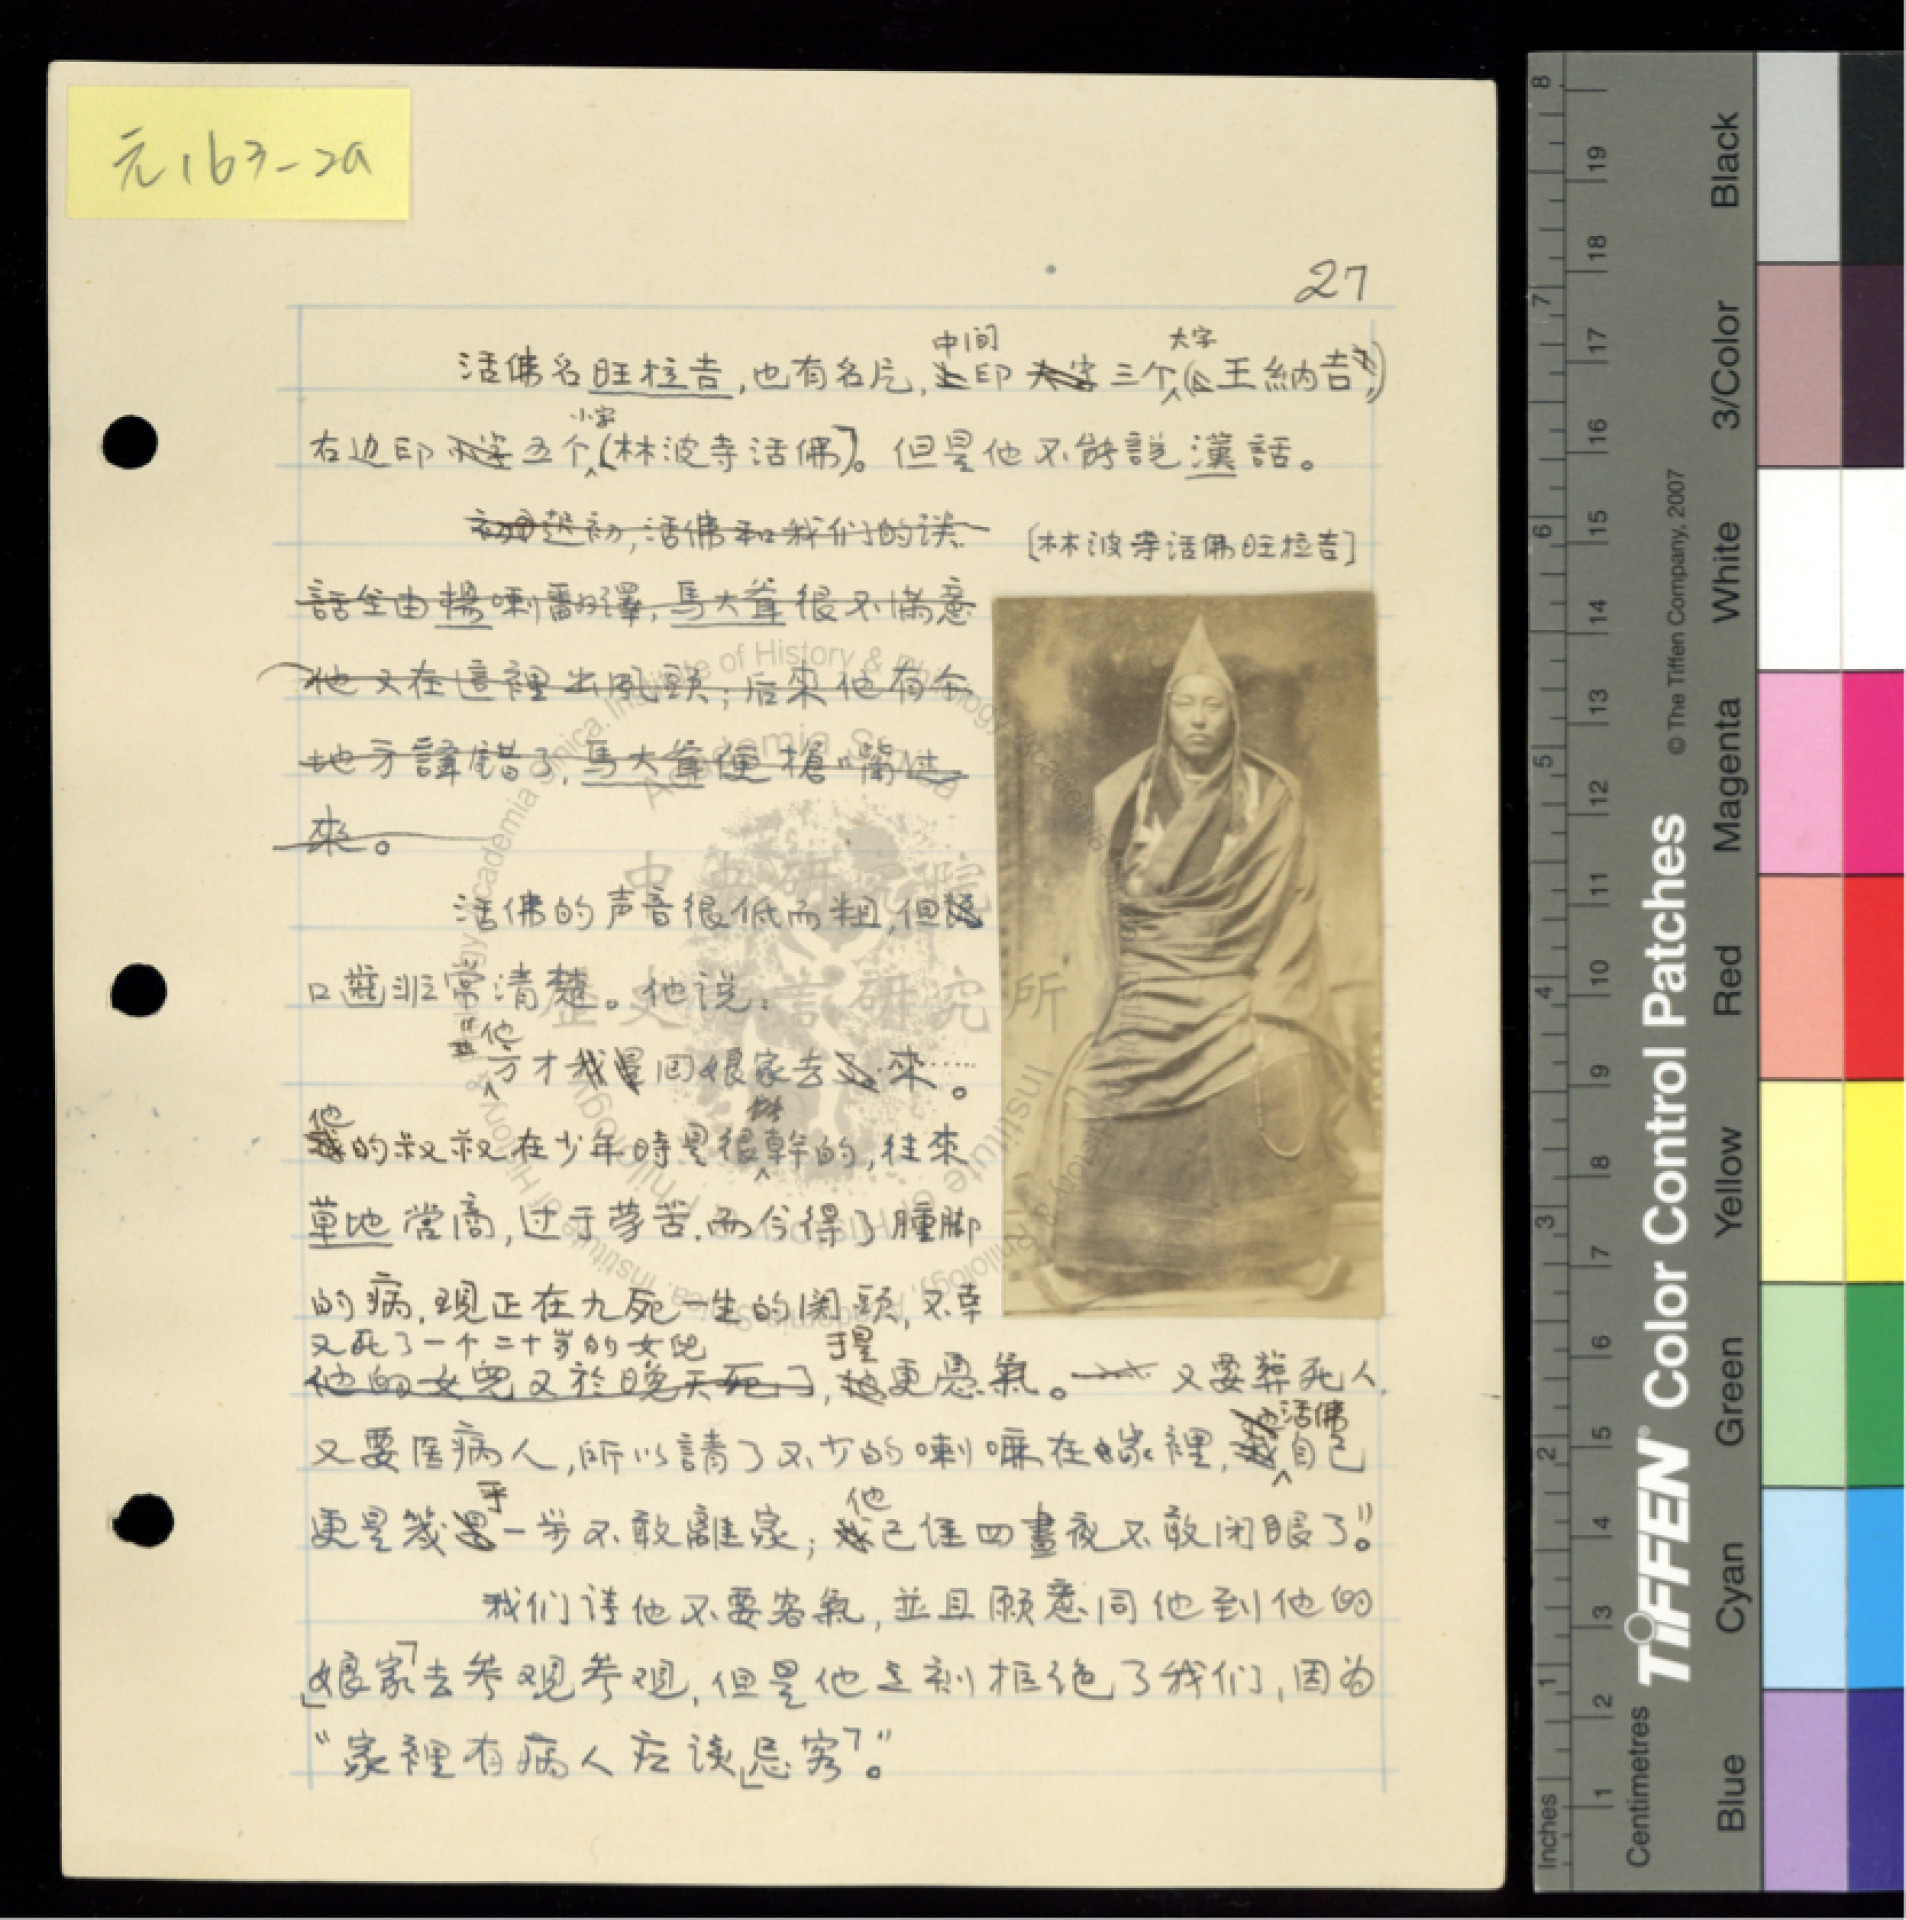 元163-2a
27
活佛名旺拉吉,也有名片,中间印三个大字(王納吉)
右边印五个小字(林波寺活佛)。但是他不能說漢話。
起初,活佛和我们的谈
[林波寺活佛旺拉吉]
話全由楊喇嘛翻譯,馬大爺很不滿意
他又在這裡出風頭;后來他有个
地方譯錯了,馬大爺便搶嘴过
來。
活佛的声音很低而粗,但
口齒非常清楚。他说:
“他方才回娘家去來……。
他的叔叔在少年時是很能幹的,往來
草地營商,过于劳苦.而今得了腫脚
的病.現正在九死一生的関頭,不幸
又死了一个二十岁的女兒
他的女兒又於晚天死了,于是更憂氣。又要葬死人,
又要医病人,所以請了不少的喇嘛在家裡,活佛自己
更是幾乎一步不敢離家;他已经四晝夜不敢闭眼了”。
我们请他不要客氣,並且願意同他到他的
「娘家」去参观参观,但是他立刻拒绝了我们,因为
“家裡有病人应该「忌客」”。
中央研究院
歷史語言研究所
Academia Sinica
Institute of History & Philology
Inches
Centimetres
TIFFEN® Color Control Patches
© The Tiffen Company, 2007
Blue
Cyan
Green
Yellow
Red
Magenta
White
3/Color
Black